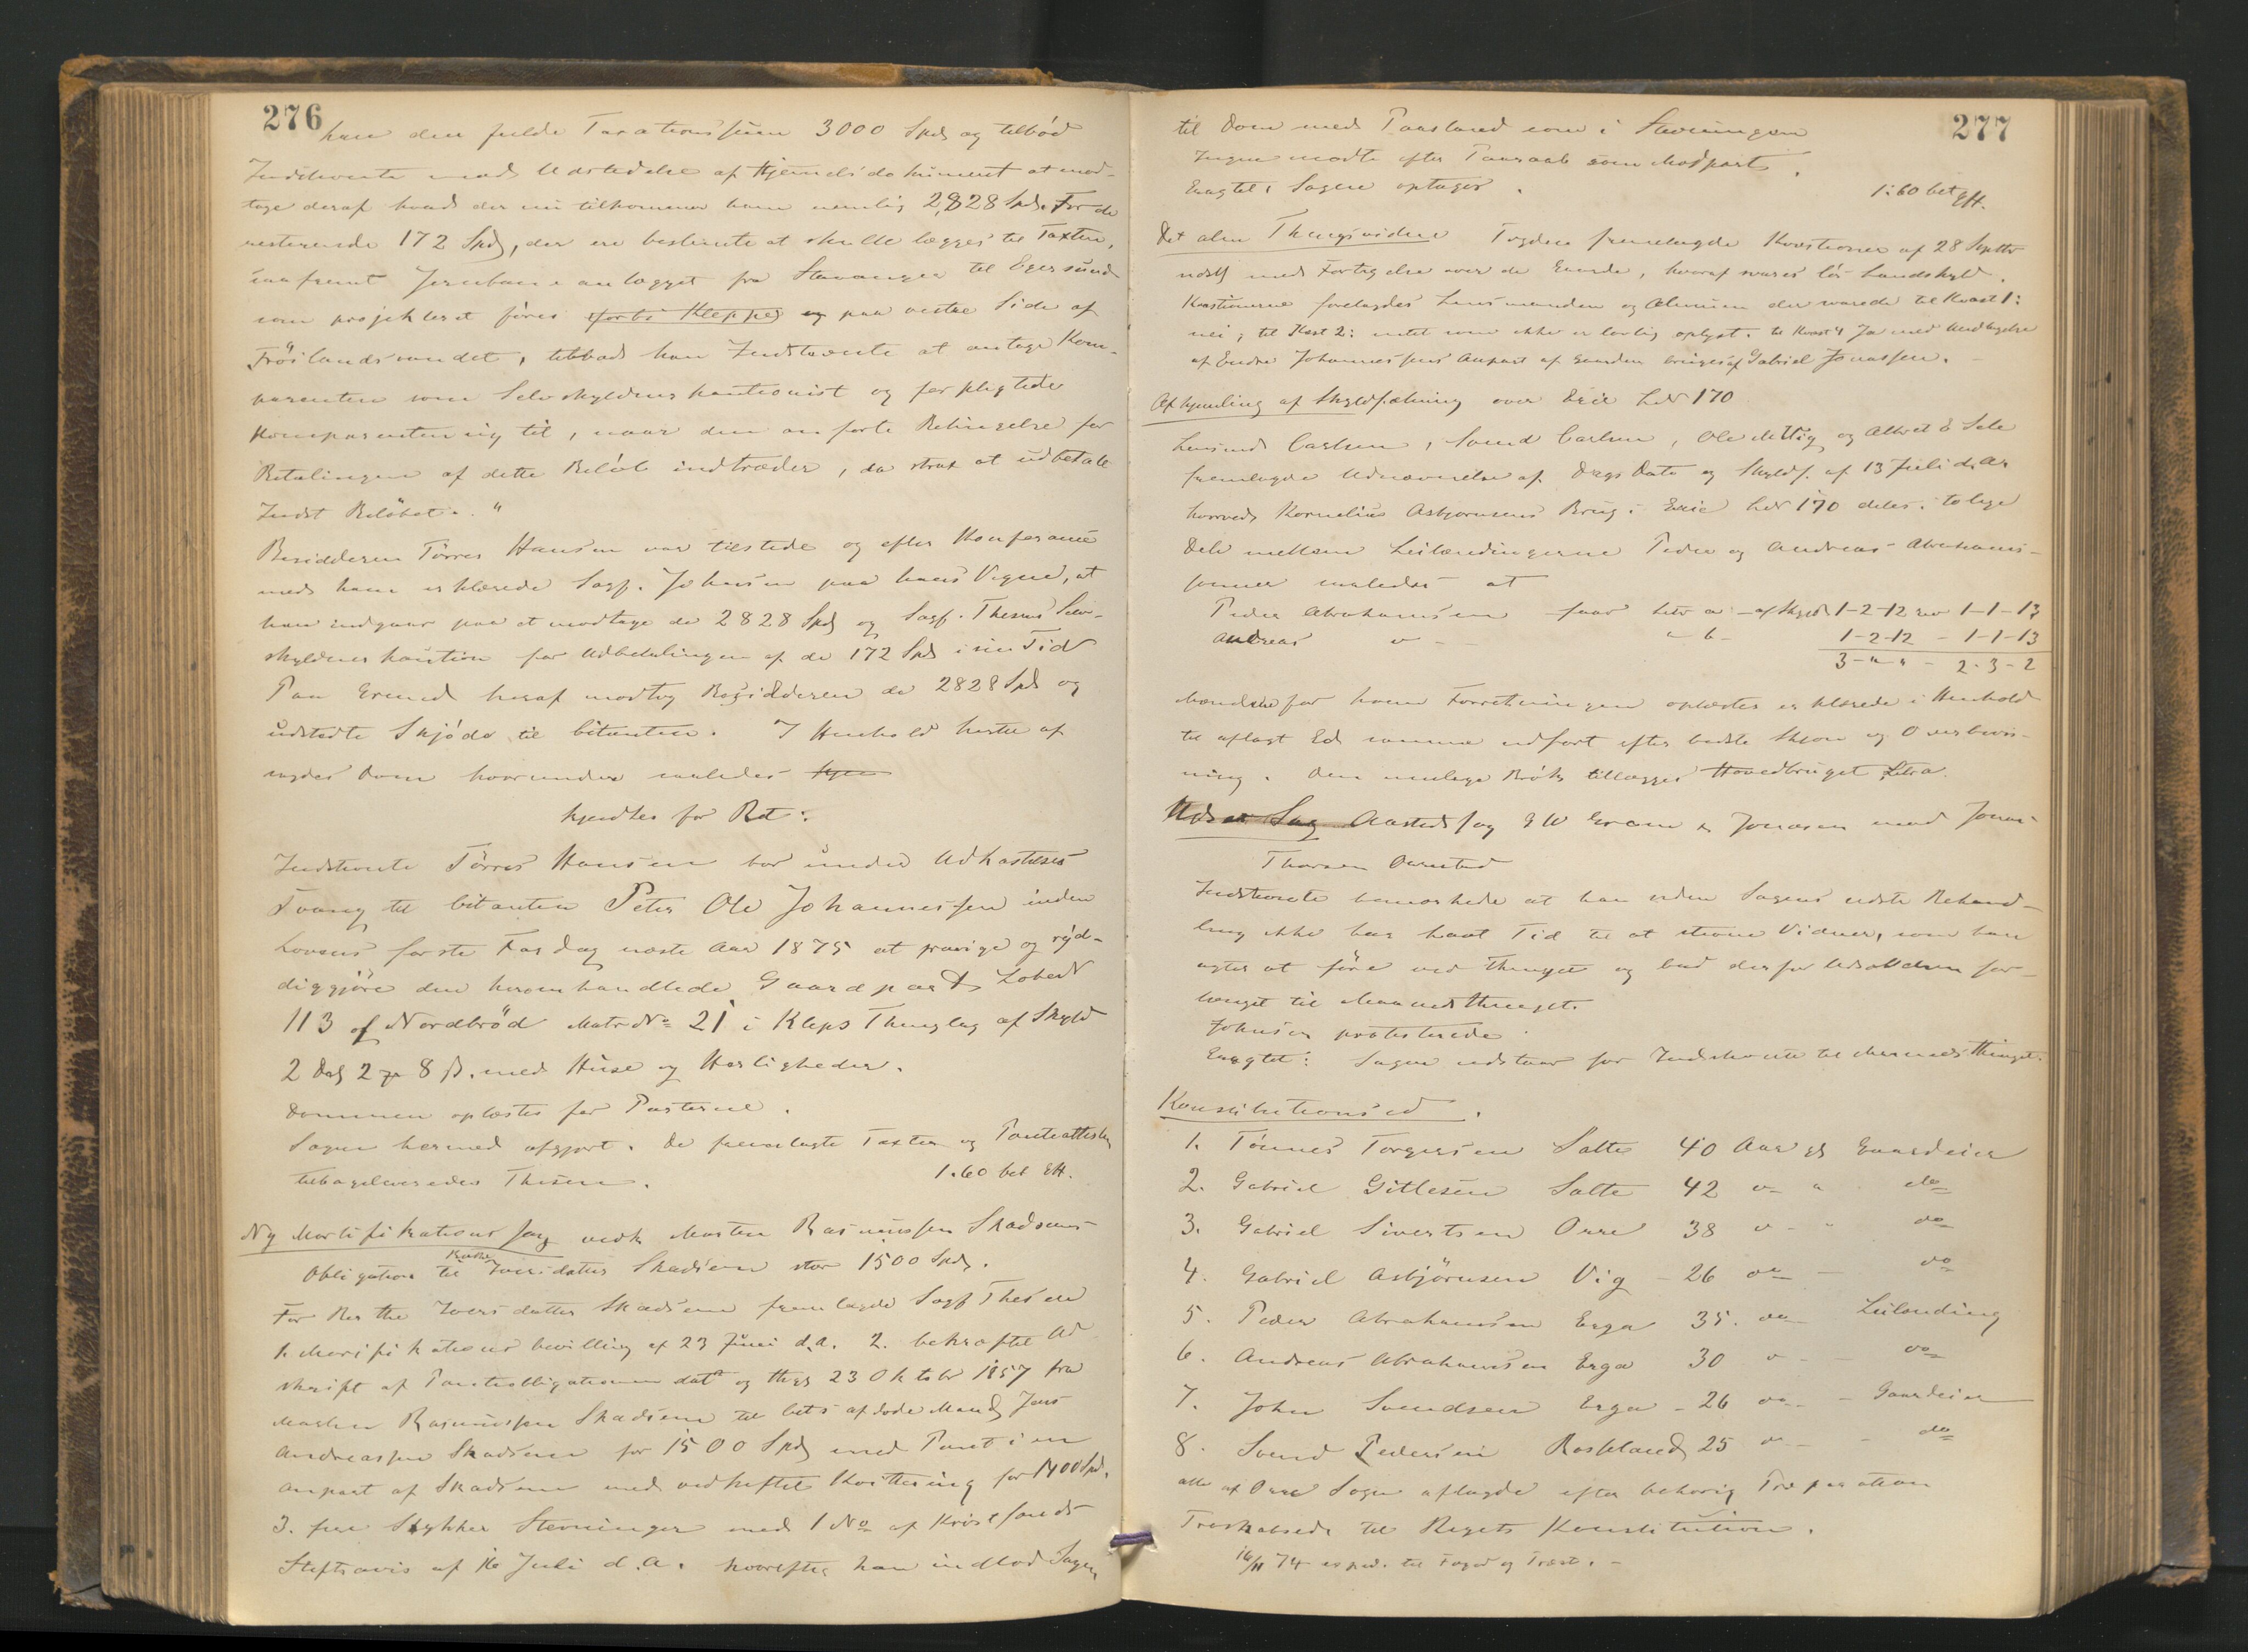 276
han den fulde Taxationssum 3000 Spd og tilbød
Indstevnte mod Udstedelse af Hjemelsdokument at mod-
tage deraf hvad der nu tilkommer ham nemlig 2,828 Spd. For de
resterende 172 Spd, der ere bestemte at skulle lægges til Taxten,
saafremt Jernbaneanlægget fra Stavanger til Egersund
som projekteret føres forbi Kleppe og paa vestre Side af
Frøilandsvandet, tilbød han Indstevnte at antage Kom-
parenten som Selvskyldnerkautionist og forpligtede
Komparenten sig til, naar den anførte Betingelse for
Betalingen af dette Beløb indtræder, da strax at udbetale
Indst Beløbet."
Besidderen Tørres Hansen var tilstede og efter Konferance
med ham erklærede Sagf. Johnsen paa hans Vegne, at
han indgaar paa at modtage de 2828 Spd og Sagf. Thesens Selv-
skyldnerkaution for Udbetalingen af de 172 Spd i sin Tid
Paa Grund heraf modtog Besidderen de 2828 Spd og
udstedte Skjøde til Citanten. I Henhold hertil af
sagdes Dom hvorunder saaledes
kjendtes for Ret:
Indstevnte Tørres Hansen bør under Udkastelses
Tvang til Citanten Peter Ole Johannessen inden
Lovens første Fardag næste Aar 1875 at fravige og ryd-
diggjøre den heromhandlede Gaardpart Løbe No
113 af Nordbrød Matr No 21 i Kleps Thinglag af Skyld
2 Dal 2 8 ß. med Huse og Herligheder.
Dommen oplæstes for Parterne.
Sagen hermed afgjort. De fremlagte Taxter og Panteattester
tilbageleveredes Thesen. 1.60 bet EH.
Ny Mortifikationssag vedk Morten Rasmussen Skadsems
Obligation til Berthe Iversdatter Skadsem stor 1500 Spd.
For Berthe Iversdatter Skadsem fremlagde Sagf Thesen
1. Morifikationsbevilling af 23 Juni d.A. 2. bekræftet Ud
skrift af Panteobligationen dat og thgl 23 Oktober 1857 fra
Morten Rasmussen Skadsem til Cits afdøde Mand Jens
Andreassen Skadsem for 1500 Spd med Pant i en
Anpart af Skadsem med vedheftet Kvittering for 1400 Spd.
3. fire Stykker Stevninger med 1 No af Kristsands
Stiftsavis af 16 Juli d.A. hvorefter han indlod Sagen
277
til Dom med Paastand som i Stevningen
Ingen mødte efter Paaraab som Modpart.
Eragtet: Sagen optages. 1.60 bet EH.
Det alm Thingsvidne Fogden fremlagde Kvæstioner af 28 Septbr
sidstl med Fortegnelse over de Gaarde, hvoraf svares løs Landskyld.
Kvæstionerne forelagdes Lensmanden og Almuen der svarede til Kvæst 1:
nei; til Kvæst 2: intet som ikke er lovlig oplyst. til Kvæst 4 Ja med Undtagelse
af Endre Johannessens Anpart af Gaarden bruges af Gabriel Jonassen.
Afhjemling af Skyldsætning over Erie Løb No 170
Lensmd Carlsen, Svend Carlsen, Ole M Vig og Albret O Sele
fremlagde Udnævnelse af Dags Dato og Skyldf. af 13 Juli d. Aar
hvorved Kornelius Asbjørnsens Brug i Erie Løb No 170 deles i to lige
Dele mellem Leilændingerne Peder og Andreas Abrahams-
sønner saaledes at
Peder Abrahamsen faar Litr a - af Skyld 1-2-12 rev 1-1-13
Andreas - b - 1-2-12 - 1-1-13
3 - " " - 2-3-2
Mændene for hvem Forretningen oplæstes erklærede i Henhold
til aflagt Ed samme udført efter bedste Skjøn og Overbevis-
ning. Den ulige Brøk tillægges Hovedbruget Litra
Udsat Sag Aasteds Sag G W Gram & Jonasen mod Jonas
Tharsen Orrestad
Indstevnte bemærkede at han siden Sagens sidste Behand-
ling ikke har havt Tid til at stevne Vidner, som han
agter at føre ved Thinget og bad derfor Udsættelsen for-
længet til Maanedsthinget.
Johnsen protesterede
Eragtet: Sagen udstaar for Indstevnte til Maanedsthinget.
Konstitutionsed.
1. Tønnes Torgersen Salte 40 Aar gl Gaardeier
2. Gabriel Gitlesen Salte 42 " do
3. Gabriel Sivertsen Orre 38 " do
4. Gabriel Asbjørnsen Vig - 26 do - do
5. Peder Abrahamsen Erga 35. do Leilending
6. Andreas Abrahamsen Erga 30 - do
7. John Svendsen Erga - 26 do - Gaardeier
8. Svend Pedersen Rosseland 25 - do
alle af Orre Sogn aflagde efter behørig Præparation
Troskabsed til Rigets Konstitution.
16/11 74 exped. til Foged og Præst. -